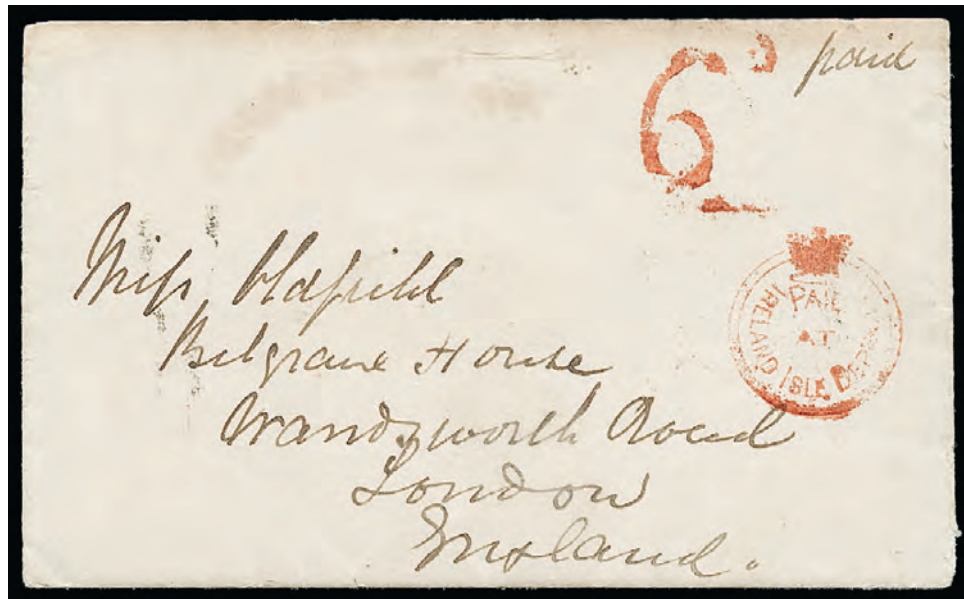 paid
6
PAID
AT
IRELAND ISLE
Miss Oldfield
Belgrave House
Wandsworth Road
London
England.